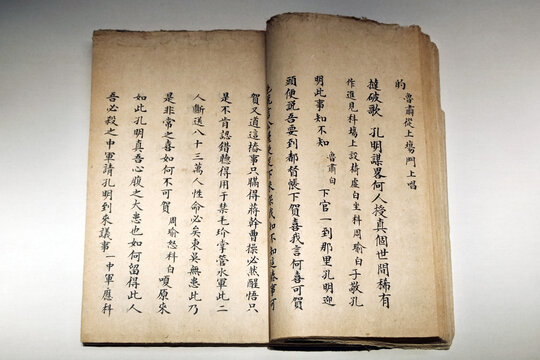 的 魯肅從上塲門上唱
撻破歌 孔明謀畧何人授真個世間稀有
作進見科塲上設椅虛白坐科周瑜白子敬孔
明此事知不知 魯肅白 下官一到那里孔明迎
頭便説吾要到都督帳下賀喜我言何喜可賀
下來探我知不知這樁事可
賀又道這樁事只瞞得蔣幹曹操必然醒悟只
是不肯認錯聽得用于禁毛玠掌管水軍此二
人斷送八十三萬人性命必矣東吳無患此乃
是非常之喜如何不可賀 周瑜怒科白嗄原來
如此孔明真吾心腹之大患也如何留得此人
吾必殺之中軍請孔明到來議事一中軍應科